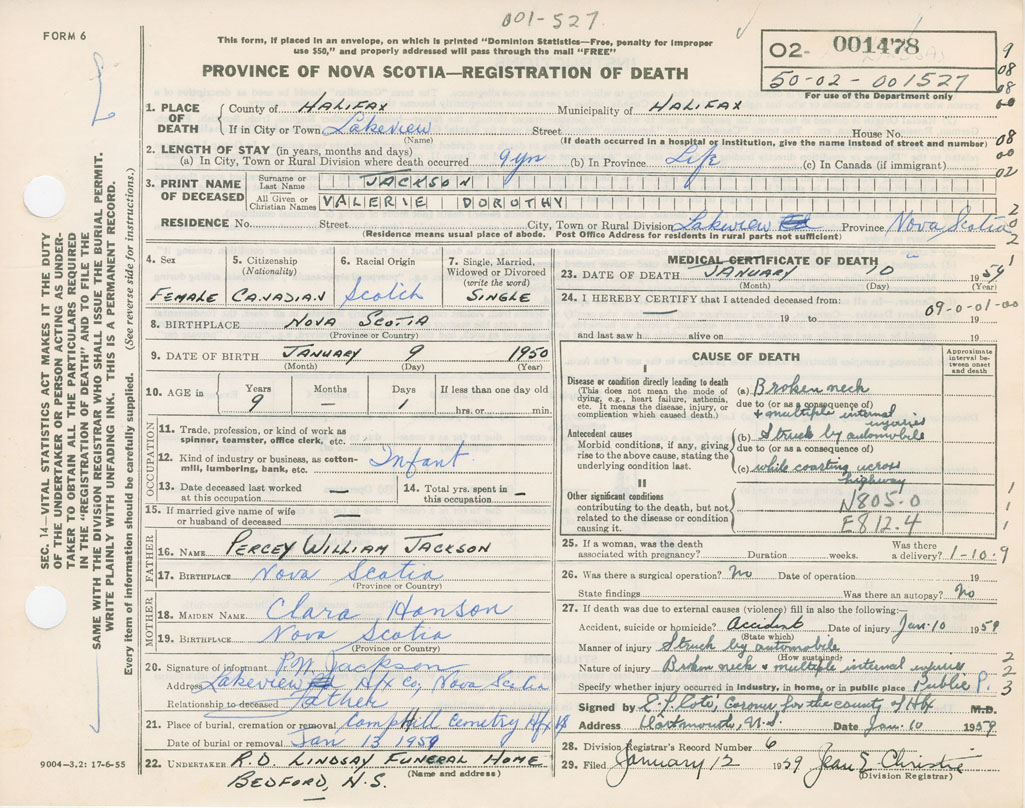 001-527.
FORM 6
This form, if placed in an envelope, on which is printed "Dominion Statistics—Free, penalty for improper
use $50," and properly addressed will pass through the mail "FREE"
PROVINCE OF NOVA SCOTIA—REGISTRATION OF DEATH
02- 001478
50-02-001527
For use of the Department only
9
08
08
00
08
00
02
2
0
2
SEC. 14—VITAL STATISTICS ACT MAKES IT THE DUTY
OF THE UNDERTAKER OR PERSON ACTING AS UNDER-
TAKER TO OBTAIN ALL THE PARTICULARS REQUIRED
IN THE "REGISTRATION OF DEATH" AND TO FILE THE
SAME WITH THE DIVISION REGISTRAR WHO SHALL ISSUE THE BURIAL PERMIT.
WRITE PLAINLY WITH UNFADING INK. THIS IS A PERMANENT RECORD.
Every item of information should be carefully supplied. (See reverse side for instructions.)
1. PLACE OF DEATH County of Halifax Municipality of Halifax
If in City or Town Lakeview Street House No.
(Name) (If death occurred in a hospital or institution, give the name instead of street and number)
2. LENGTH OF STAY (in years, months and days)
(a) In City, Town or Rural Division where death occurred 9 yrs (b) In Province Life (c) In Canada (if immigrant)
3. PRINT NAME OF DECEASED Surname or Last Name JACKSON
All Given or Christian Names VALERIE DOROTHY
RESIDENCE No. Street City, Town or Rural Division Lakeview Province Nova Scotia
(Residence means usual place of abode. Post Office Address for residents in rural parts not sufficient)
4. Sex 5. Citizenship (Nationality) 6. Racial Origin 7. Single, Married, Widowed or Divorced (write the word)
FEMALE CANADIAN Scotch SINGLE
8. BIRTHPLACE NOVA SCOTIA
(Province or Country)
9. DATE OF BIRTH JANUARY 9 1950
(Month) (Day) (Year)
10. AGE in Years Months Days If less than one day old
9 — 1 hrs. or min.
OCCUPATION
11. Trade, profession, or kind of work as
spinner, teamster, office clerk, etc.
12. Kind of industry or business, as cotton-
mill, lumbering, bank, etc. Infant
13. Date deceased last worked at this occupation — 14. Total yrs. spent in this occupation —
15. If married give name of wife
or husband of deceased —
FATHER
16. NAME PERCEY WILLIAM JACKSON
17. BIRTHPLACE Nova Scotia
(Province or Country)
MOTHER
18. MAIDEN NAME Clara Hanson
19. BIRTHPLACE Nova Scotia
(Province or Country)
20. Signature of informant P.W. Jackson
Address Lakeview Hfx Co, Nova Scotia
Relationship to deceased Father
21. Place of burial, cremation or removal Camphill Cemetry Hfx NS
Date of burial or removal Jan 13 1959
22. UNDERTAKER R.D. LINDSAY FUNERAL HOME
(Name and address)
BEDFORD, N.S.
9004-3.2: 17-6-55
MEDICAL CERTIFICATE OF DEATH
23. DATE OF DEATH JANUARY 10 1959
(Month) (Day) (Year)
24. I HEREBY CERTIFY that I attended deceased from:
09-0-01-00
— 19 to 19
and last saw h alive on 19
CAUSE OF DEATH
Approximate interval between onset and death
I
Disease or condition directly leading to death
(This does not mean the mode of dying, e.g., heart failure, asthenia, etc. It means the disease, injury, or complication which caused death.)
(a) Broken neck
due to (or as a consequence of)
& multiple internal injuries
Antecedent causes
Morbid conditions, if any, giving rise to the above cause, stating the underlying condition last.
(b) Struck by automobile
due to (or as a consequence of)
(c) while coasting across highway
II
Other significant conditions
contributing to the death, but not related to the disease or condition causing it.
N805-0
E812.4
1
1
1
1
25. If a woman, was the death associated with pregnancy? Duration weeks. Was there a delivery? 1-10-9
26. Was there a surgical operation? No Date of operation 19
State findings Was there an autopsy? No
27. If death was due to external causes (violence) fill in also the following:—
Accident, suicide or homicide? Accident Date of injury Jan. 10 1959
(State which)
Manner of injury Struck by automobile
(How sustained)
Nature of injury Broken neck & multiple internal injuries
Specify whether injury occurred in industry, in home, or in public place Public P.
2
2
3
Signed by E.F. Coté, Coroner for the county of Hfx M.D.
Address Dartmouth, N.S. Date Jan. 10 1959
28. Division Registrar's Record Number 6
29. Filed January 12 1959 Jean E Christie
(Division Registrar)